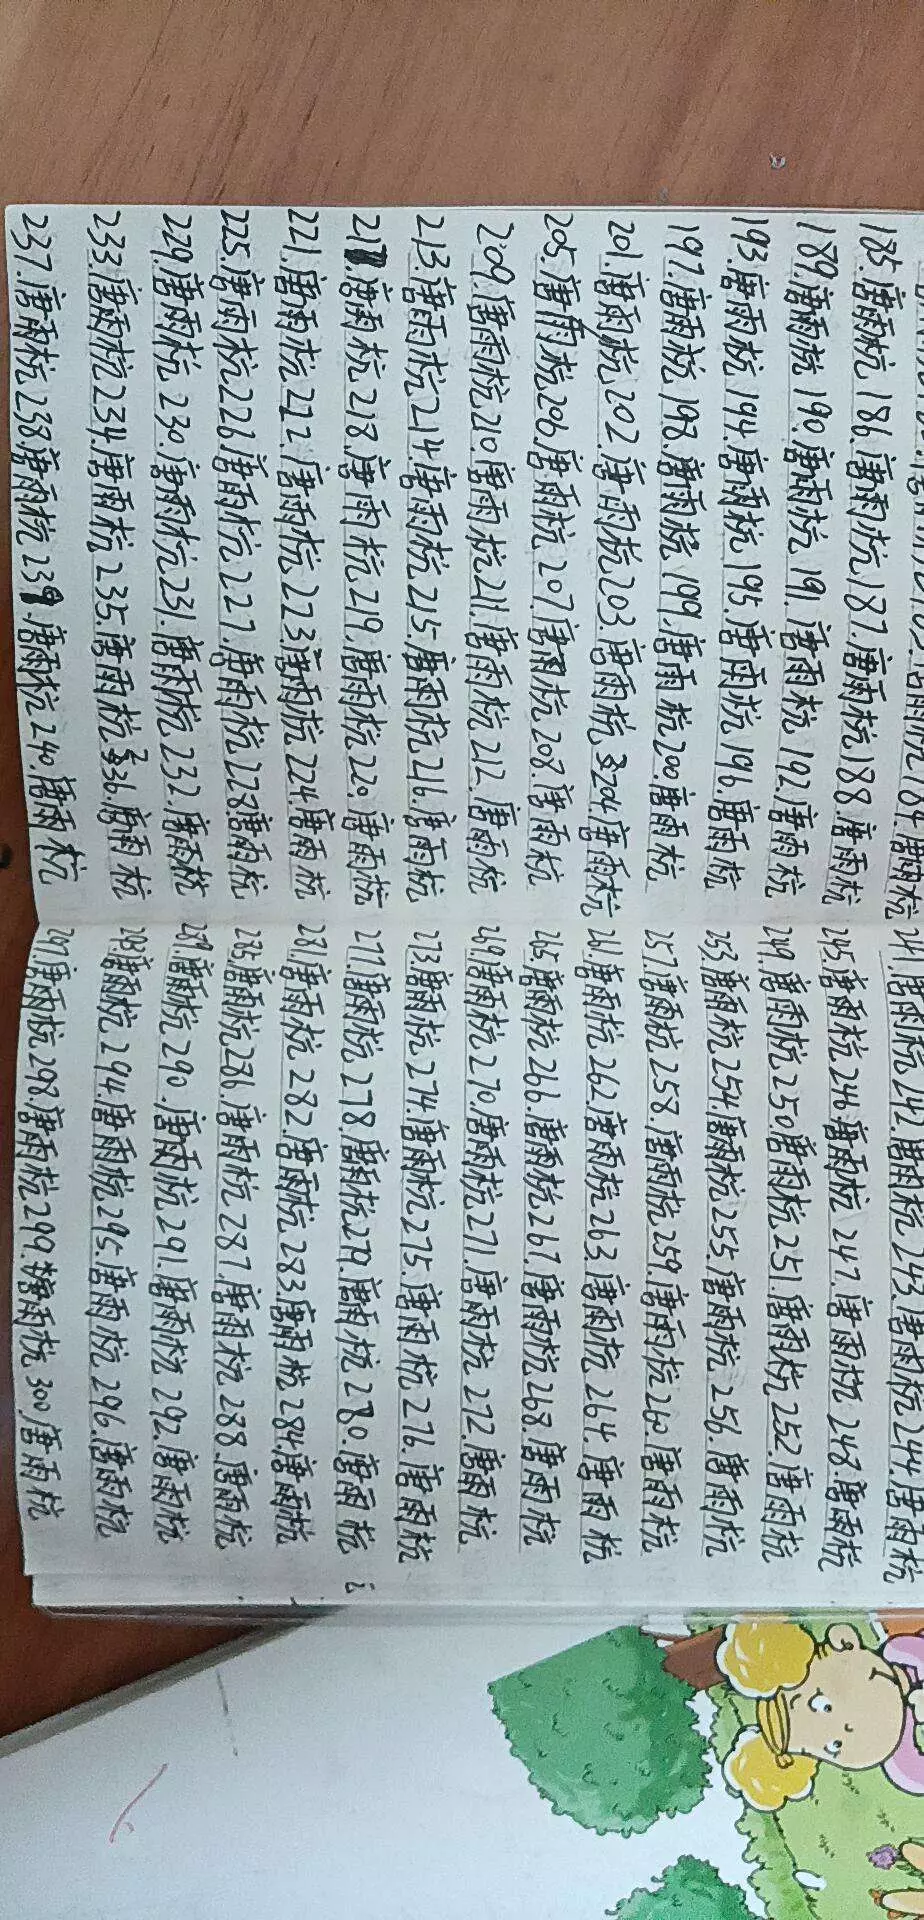 185.唐雨杭 186.唐雨杭 187.唐雨杭 188.唐雨杭
189.唐雨杭 190.唐雨杭 191.唐雨杭 192.唐雨杭
193.唐雨杭 194.唐雨杭 195.唐雨杭 196.唐雨杭
197.唐雨杭 198.唐雨杭 199.唐雨杭 200.唐雨杭
201.唐雨杭 202.唐雨杭 203.唐雨杭 204.唐雨杭
205.唐雨杭 206.唐雨杭 207.唐雨杭 208.唐雨杭
209.唐雨杭 210.唐雨杭 211.唐雨杭 212.唐雨杭
213.唐雨杭 214.唐雨杭 215.唐雨杭 216.唐雨杭
217.唐雨杭 218.唐雨杭 219.唐雨杭 220.唐雨杭
221.唐雨杭 222.唐雨杭 223唐雨杭 224.唐雨杭
225.唐雨杭 226.唐雨杭 227.唐雨杭 228.唐雨杭
229.唐雨杭 230.唐雨杭 231.唐雨杭 232.唐雨杭
233.唐雨杭 234.唐雨杭 235.唐雨杭 236.唐雨杭
237.唐雨杭 238.唐雨杭 239.唐雨杭 240.唐雨杭
241.唐雨杭 242.唐雨杭 243.唐雨杭 244.唐雨杭
245.唐雨杭 246.唐雨杭 247.唐雨杭 248.唐雨杭
249.唐雨杭 250唐雨杭 251.唐雨杭 252.唐雨杭
253.唐雨杭 254.唐雨杭 255.唐雨杭 256.唐雨杭
257.唐雨杭 258.唐雨杭 259.唐雨杭 260.唐雨杭
261.唐雨杭 262唐雨杭 263.唐雨杭 264.唐雨杭
265.唐雨杭 266.唐雨杭 267.唐雨杭 268.唐雨杭
269.唐雨杭 270.唐雨杭 271.唐雨杭 272.唐雨杭
273.唐雨杭 274.唐雨杭 275.唐雨杭 276.唐雨杭
277.唐雨杭 278.唐雨杭 279.唐雨杭 280.唐雨杭
281.唐雨杭 282.唐雨杭 283.唐雨杭 284.唐雨杭
285.唐雨杭 286.唐雨杭 287.唐雨杭 288.唐雨杭
289.唐雨杭 290.唐雨杭 291.唐雨杭 292.唐雨杭
293.唐雨杭 294.唐雨杭 295.唐雨杭 296.唐雨杭
297.唐雨杭 298.唐雨杭 299.唐雨杭 300.唐雨杭